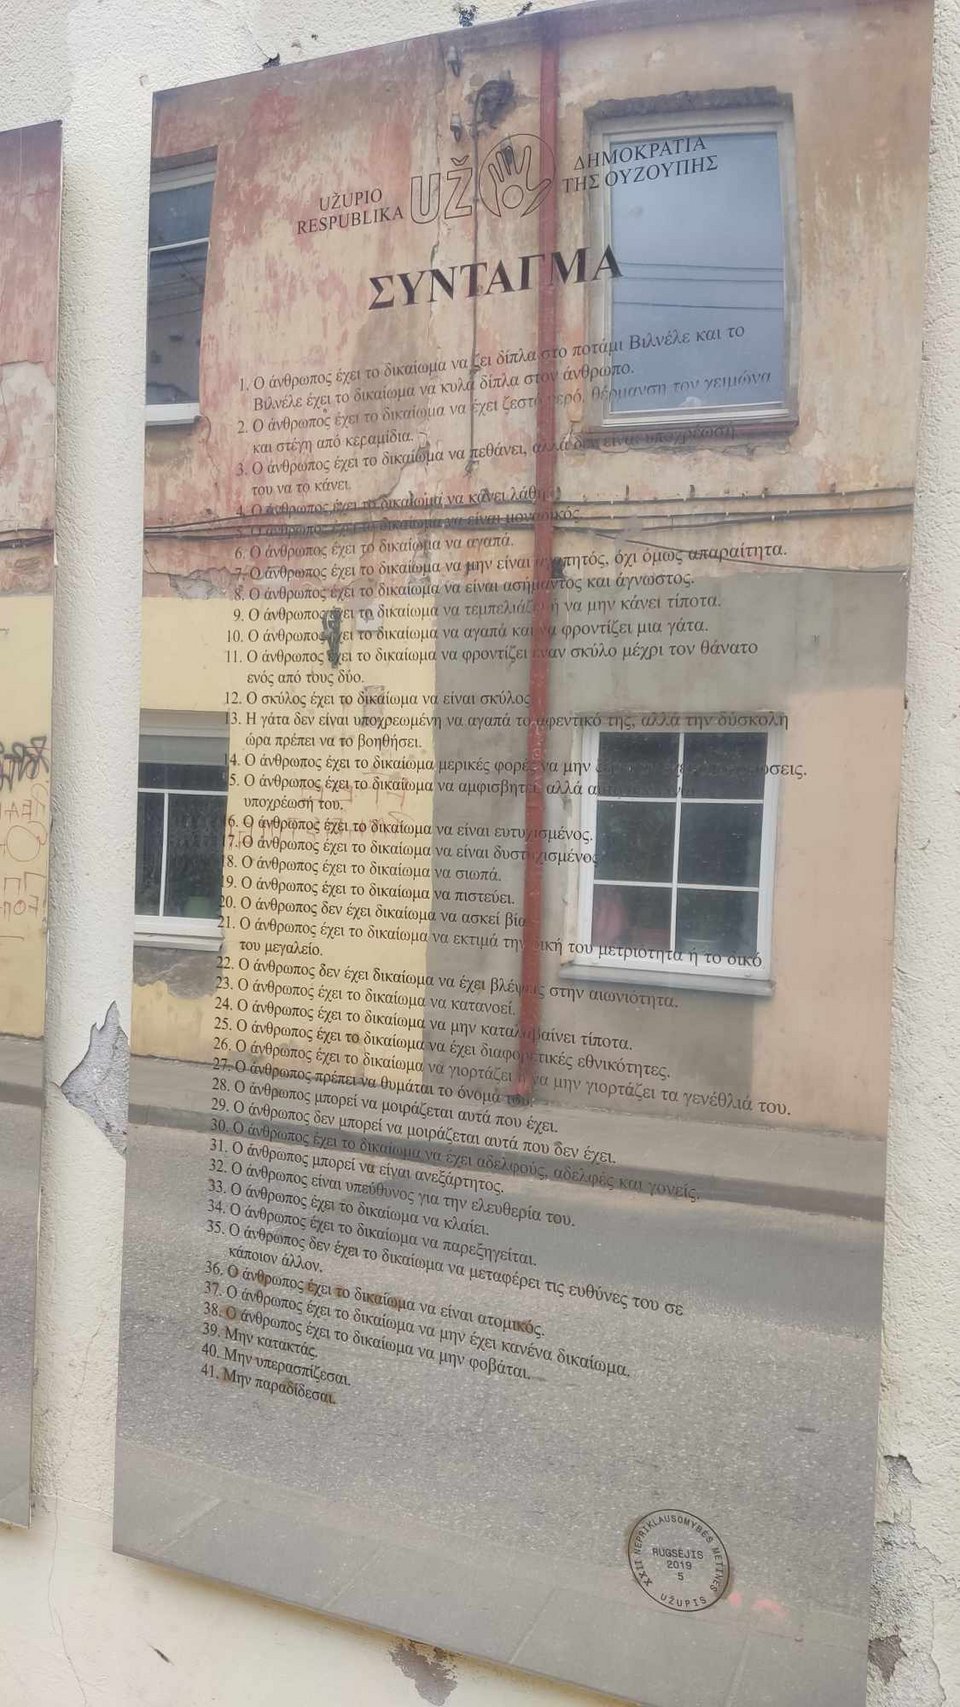 UŽUPIO
RESPUBLIKA
UŽ
ΔΗΜΟΚΡΑΤΙΑ
ΤΗΣ ΟΥΖΟΥΠΗΣ
ΣΥΝΤΑΓΜΑ
1. Ο άνθρωπος έχει το δικαίωμα να ζει δίπλα στο ποτάμι Βιλνέλε και το
Βιλνέλε έχει το δικαίωμα να κυλά δίπλα στον άνθρωπο.
2. Ο άνθρωπος έχει το δικαίωμα να έχει ζεστό νερό, θέρμανση τον χειμώνα
και στέγη από κεραμίδια.
3. Ο άνθρωπος έχει το δικαίωμα να πεθάνει, αλλά δεν είναι υποχρέωσή
του να το κάνει.
4. Ο άνθρωπος έχει το δικαίωμα να κάνει λάθη.
5. Ο άνθρωπος έχει το δικαίωμα να είναι μοναδικός.
6. Ο άνθρωπος έχει το δικαίωμα να αγαπά.
7. Ο άνθρωπος έχει το δικαίωμα να μην είναι αγαπητός, όχι όμως απαραίτητα.
8. Ο άνθρωπος έχει το δικαίωμα να είναι ασήμαντος και άγνωστος.
9. Ο άνθρωπος έχει το δικαίωμα να τεμπελιάζει ή να μην κάνει τίποτα.
10. Ο άνθρωπος έχει το δικαίωμα να αγαπά και να φροντίζει μια γάτα.
11. Ο άνθρωπος έχει το δικαίωμα να φροντίζει έναν σκύλο μέχρι τον θάνατο
ενός από τους δύο.
12. Ο σκύλος έχει το δικαίωμα να είναι σκύλος.
13. Η γάτα δεν είναι υποχρεωμένη να αγαπά το αφεντικό της, αλλά την δύσκολη
ώρα πρέπει να το βοηθήσει.
14. Ο άνθρωπος έχει το δικαίωμα μερικές φορές να μην
15. Ο άνθρωπος έχει το δικαίωμα να αμφισβητεί, αλλά
υποχρέωσή του.
16. Ο άνθρωπος έχει το δικαίωμα να είναι ευτυχισμένος.
17. Ο άνθρωπος έχει το δικαίωμα να είναι δυστυχισμένος
18. Ο άνθρωπος έχει το δικαίωμα να σιωπά.
19. Ο άνθρωπος έχει το δικαίωμα να πιστεύει.
20. Ο άνθρωπος δεν έχει δικαίωμα να ασκεί βία
21. Ο άνθρωπος έχει το δικαίωμα να εκτιμά την δική του μετριότητα ή το δικό
του μεγαλείο.
22. Ο άνθρωπος δεν έχει δικαίωμα να έχει βλέψεις στην αιωνιότητα.
23. Ο άνθρωπος έχει το δικαίωμα να κατανοεί.
24. Ο άνθρωπος έχει το δικαίωμα να μην καταλαβαίνει τίποτα.
25. Ο άνθρωπος έχει το δικαίωμα να έχει διαφορετικές εθνικότητες.
26. Ο άνθρωπος έχει το δικαίωμα να γιορτάζει ή να μην γιορτάζει τα γενέθλιά του.
27. Ο άνθρωπος πρέπει να θυμάται το όνομά του.
28. Ο άνθρωπος μπορεί να μοιράζεται αυτά που έχει.
29. Ο άνθρωπος δεν μπορεί να μοιράζεται αυτά που δεν έχει.
30. Ο άνθρωπος έχει το δικαίωμα να έχει αδελφούς, αδελφές και γονείς.
31. Ο άνθρωπος μπορεί να είναι ανεξάρτητος.
32. Ο άνθρωπος είναι υπεύθυνος για την ελευθερία του.
33. Ο άνθρωπος έχει το δικαίωμα να κλαίει.
34. Ο άνθρωπος έχει το δικαίωμα να παρεξηγείται.
35. Ο άνθρωπος δεν έχει το δικαίωμα να μεταφέρει τις ευθύνες του σε
κάποιον άλλον.
36. Ο άνθρωπος έχει το δικαίωμα να είναι ατομικός.
37. Ο άνθρωπος έχει το δικαίωμα να μην έχει κανένα δικαίωμα.
38. Ο άνθρωπος έχει το δικαίωμα να μην φοβάται.
39. Μην κατακτάς.
40. Μην υπερασπίζεσαι.
41. Μην παραδίδεσαι.
XXII NEPRIKLAUSOMYBĖS METINĖS
RUGSĖJIS
2019
5
UŽUPIS